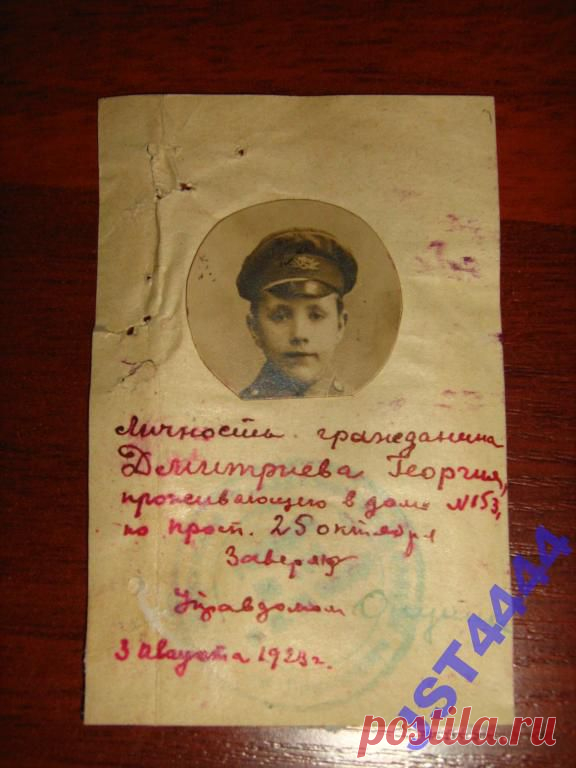 Личность гражданина
Дмитриева Георгия,
проживающего в доме №153,
по просп. 25 октября
Заверяю
Управдомом
3 августа 1923 г.
JST4444
postila.ru